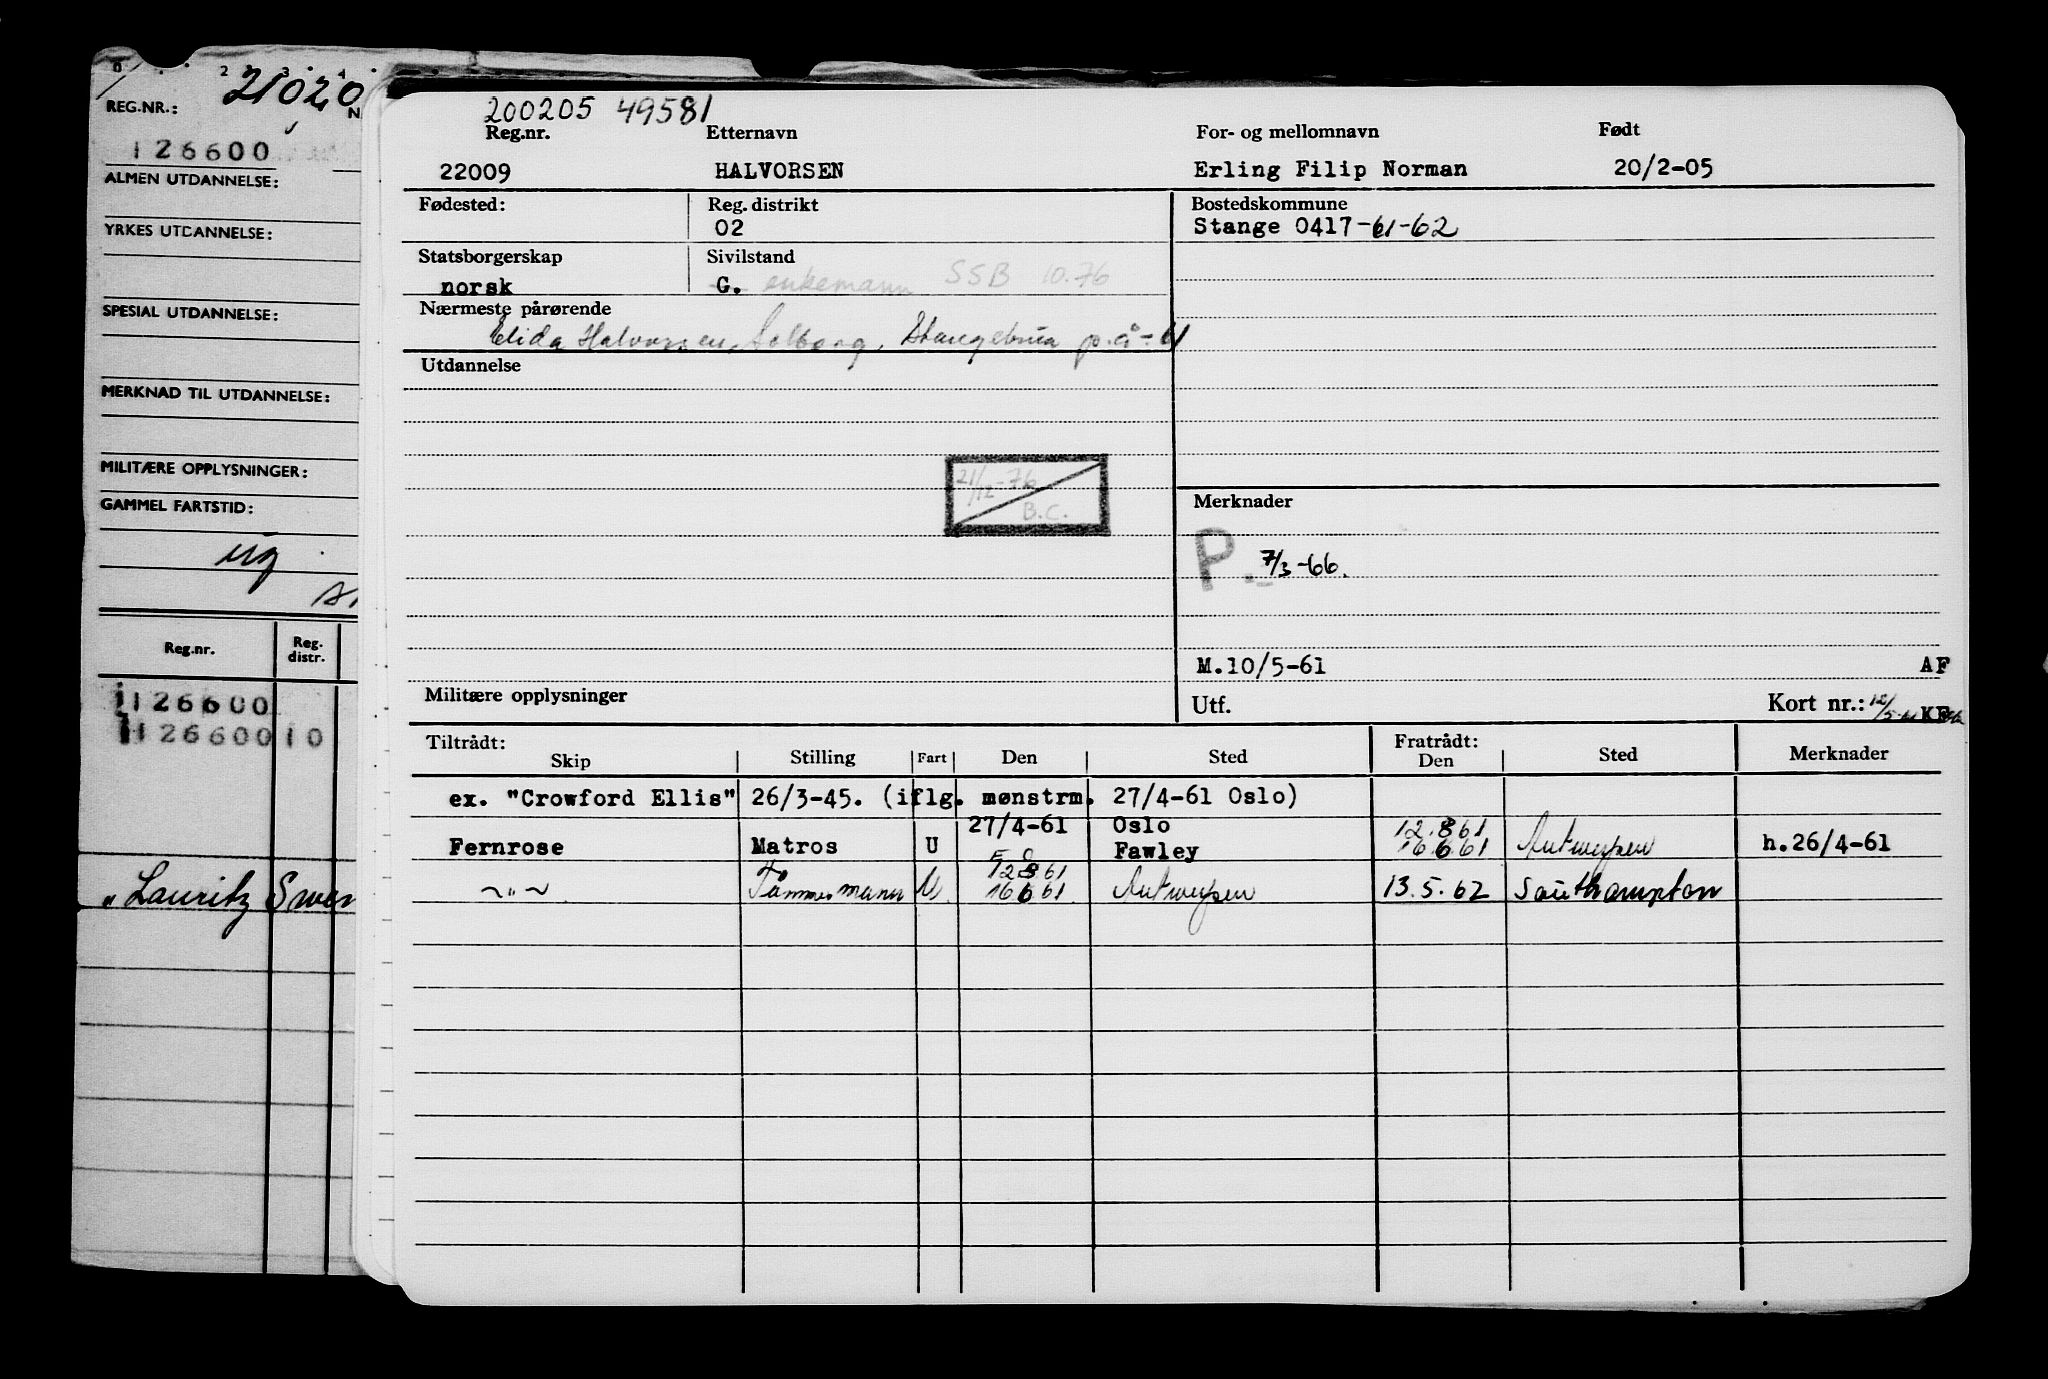 21020
REG.NR.:
126600
ALMEN UTDANNELSE:
YRKES UTDANNELSE:
SPESIAL UTDANNELSE:
MERKNAD TIL UTDANNELSE:
MILITÆRE OPPLYSNINGER:
GAMMEL FARTSTID:
Reg.nr. Reg. distr.
126600
126600 10
" Lauritz Swen
200205 49581
Reg.nr. Etternavn For- og mellomnavn Født
22009 HALVORSEN Erling Filip Norman 20/2-05
Fødested: Reg. distrikt Bostedskommune
02 Stange 0417-61-62
Statsborgerskap Sivilstand
norsk G. enkemann SSB 10.76
Nærmeste pårørende
Elida Halvorsen, Solborg, Stangebrua p.å-61
Utdannelse
21/12-76
B.C.
Merknader
P. 7/3-66.
M.10/5-61 AF
Militære opplysninger Utf. Kort nr.: KF
Tiltrådt: Fratrådt:
Skip Stilling Fart Den Sted Den Sted Merknader
ex. "Crowford Ellis" 26/3-45. (iflg. mønstrm. 27/4-61 Oslo)
27/4-61 Oslo 12.8 61
Fernrose Matros U Fawley 16 6 61 Antwerpen h.26/4-61
12 8 61
~"~ Tømmermann U 16 6 61 Antwerpen 13.5.62 Southampton